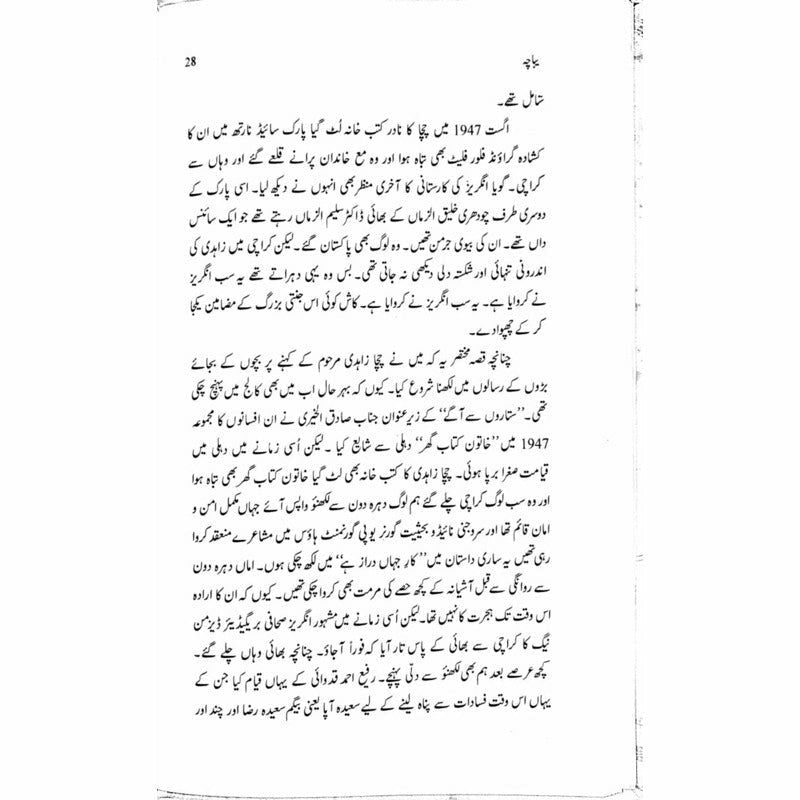 یباچہ 28
شامل تھے۔
اگست 1947 میں چچا کا نادر کتب خانہ لُٹ گیا پارک سائیڈ نارتھ میں ان کا
کشادہ گراؤنڈ فلور فلیٹ بھی تباہ ہوا اور وہ مع خاندان پرانے قلعے گئے اور وہاں سے
کراچی۔ گویا انگریز کی کارستانی کا آخری منظر بھی انہوں نے دیکھ لیا۔ اسی پارک کے
دوسری طرف چودھری خلیق الزماں کے بھائی ڈاکٹر سلیم الزماں رہتے تھے جو ایک سائنس
داں تھے۔ ان کی بیوی جرمن تھیں۔ وہ لوگ بھی پاکستان گئے۔ لیکن کراچی میں زاہدی کی
اندرونی تنہائی اور شکستہ دلی دیکھی نہ جاتی تھی۔ بس وہ یہی دہراتے تھے یہ سب انگریز
نے کروایا ہے۔ یہ سب انگریز نے کروایا ہے۔ کاش کوئی اس جنتی بزرگ کے مضامین یکجا
کر کے چھپوا دے۔
چنانچہ قصہ مختصر یہ کہ میں نے چچا زاہدی مرحوم کے کہنے پر بچوں کے بجائے
بڑوں کے رسالوں میں لکھنا شروع کیا۔ کیوں کہ بہر حال اب میں بھی کالج میں پہنچ چکی
تھی۔ ’’ستاروں سے آگے‘‘ کے زیر عنوان جناب صادق الخیری نے ان افسانوں کا مجموعہ
1947 میں ’’خاتون کتاب گھر‘‘ دہلی سے شایع کیا ۔ لیکن اُسی زمانے میں دہلی میں
قیامت صغرا برپا ہوئی۔ چچا زاہدی کا کتب خانہ بھی لٹ گیا خاتون کتاب گھر بھی تباہ ہوا
اور وہ سب لوگ کراچی چلے گئے ہم لوگ دہرہ دون سے لکھنؤ واپس آئے جہاں مکمل امن و
امان قائم تھا اور سروجنی نائیڈو بحیثیت گورنر یو پی گورنمنٹ ہاؤس میں مشاعرے منعقد کروا
رہی تھیں یہ ساری داستان میں ’’کار جہاں دراز ہے‘‘ میں لکھ چکی ہوں۔ اماں دہرہ دون
سے روانگی سے قبل آشیانہ کے کچھ حصے کی مرمت بھی کروا چکی تھیں۔ کیوں کہ ان کا ارادہ
اس وقت تک ہجرت کا نہیں تھا۔ لیکن اُسی زمانے میں مشہور انگریز صحافی بریگیڈیئر ڈیزمن
ٹیگ کا کراچی سے بھائی کے پاس تار آیا کہ فوراً آجاؤ۔ چنانچہ بھائی وہاں چلے گئے۔
کچھ عرصے بعد ہم بھی لکھنؤ سے دلّی پہنچے۔ رفیع احمد قدوائی کے یہاں قیام کیا جن کے
یہاں اس وقت فسادات سے پناہ لینے کے لیے سعیدہ آپا یعنی بیگم سعیدہ رضا اور چند اور